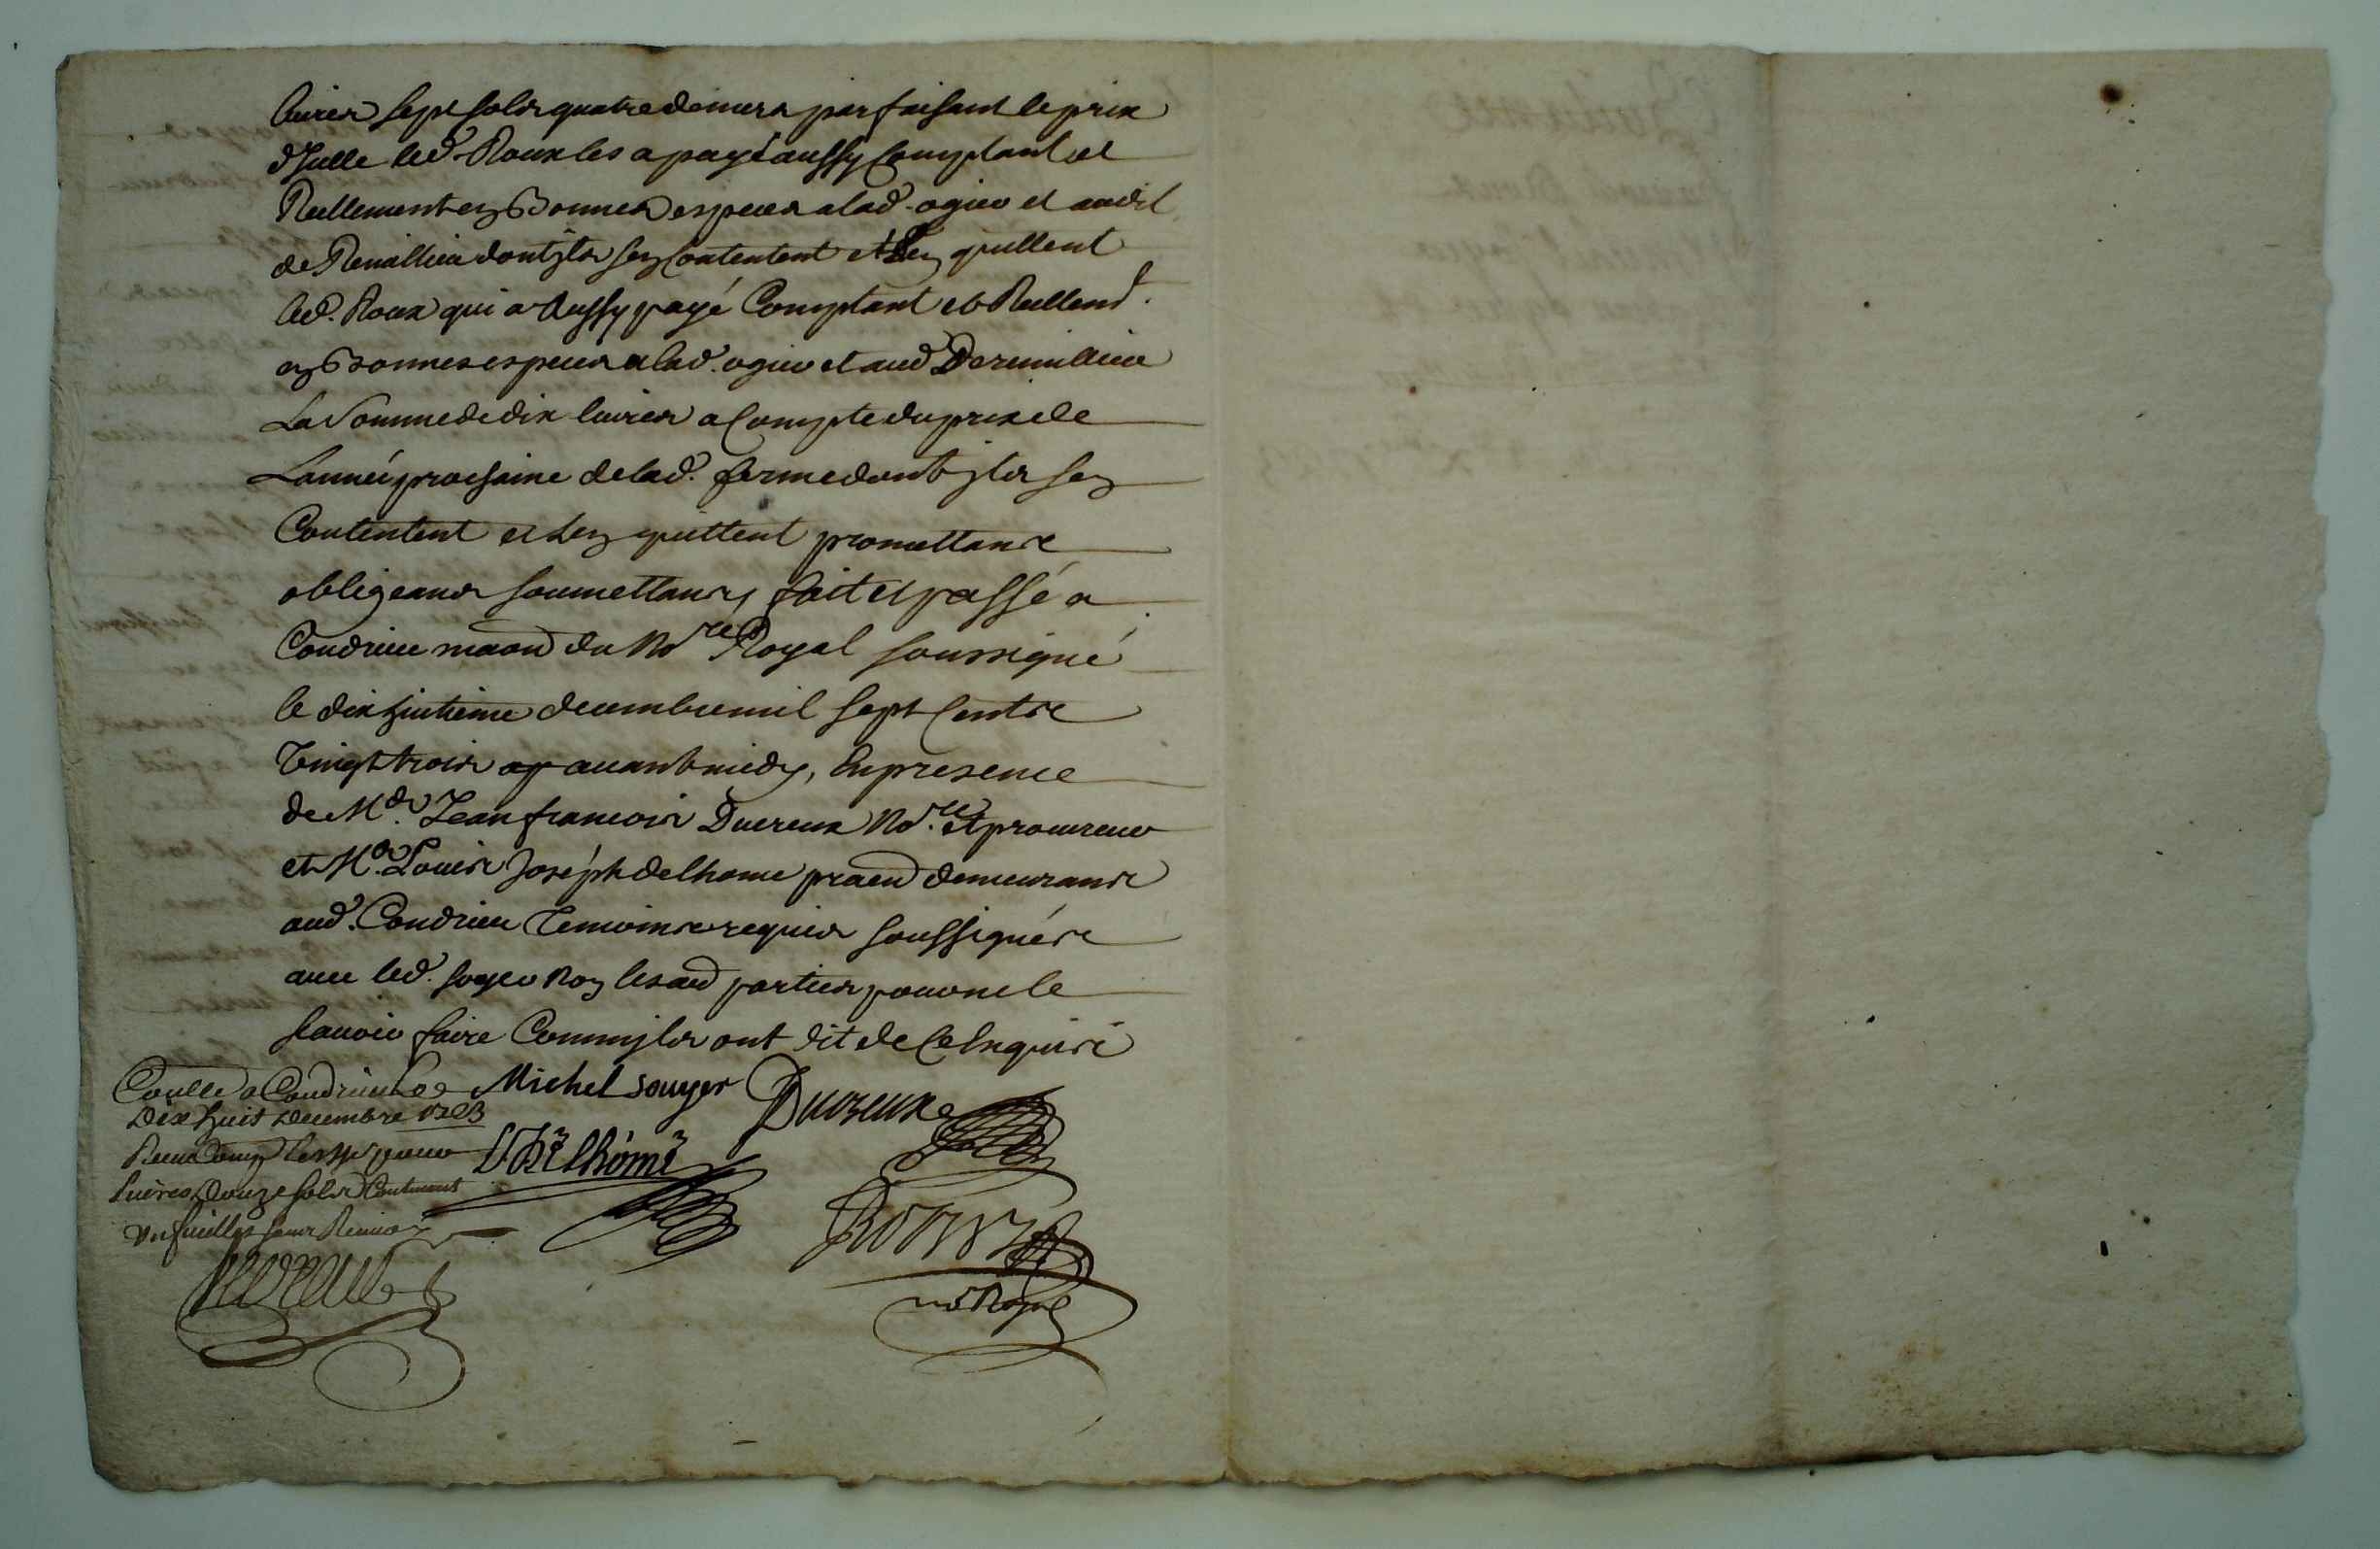 livres sept sols quatre deniers parfaisant le prix
d'Jcelle led. Roux les a payé aussy Comptant et
Reellement en Bonnes especes a lad. ogier et audit
de Remillieu dont jls sen Contentent et Len quittent
led. Roux qui a Aussy payé Comptant et Reellemt.
en Bonnes especes a lad. ogier et aud. De remillieu
La Somme de dix livres a Compte du prix de
L'année prochaine de lad. ferme dont jls sen
Contentent et Len quittent promettans
obligeans soumettans, fait et passé a
Condrieu maon du Nore Royal soussigné
le dix huitieme decembre mil sept Cents
Vingt trois avant midy, En presence
de Me. Jean francois Ducreux Nore. et procureur
et Me. Louis Joséph delhome praen demeurans
aud. Condrieu Temoins requis soussignés
avec led. soyer Non lesd parties pour ne le
scavoir faire Comm jls ont dit de Ce Enquis
Michel souyer Ducreux
Conllé a Condrieu Le
Dix huit decembre 1723
Receu
Livres Douze sols Contenant
Delhome
nore Royal